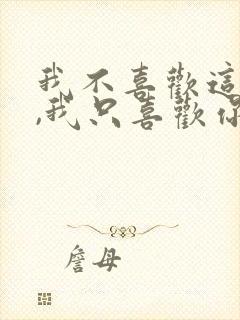 我不喜歡這
,我只喜歡你
詹母